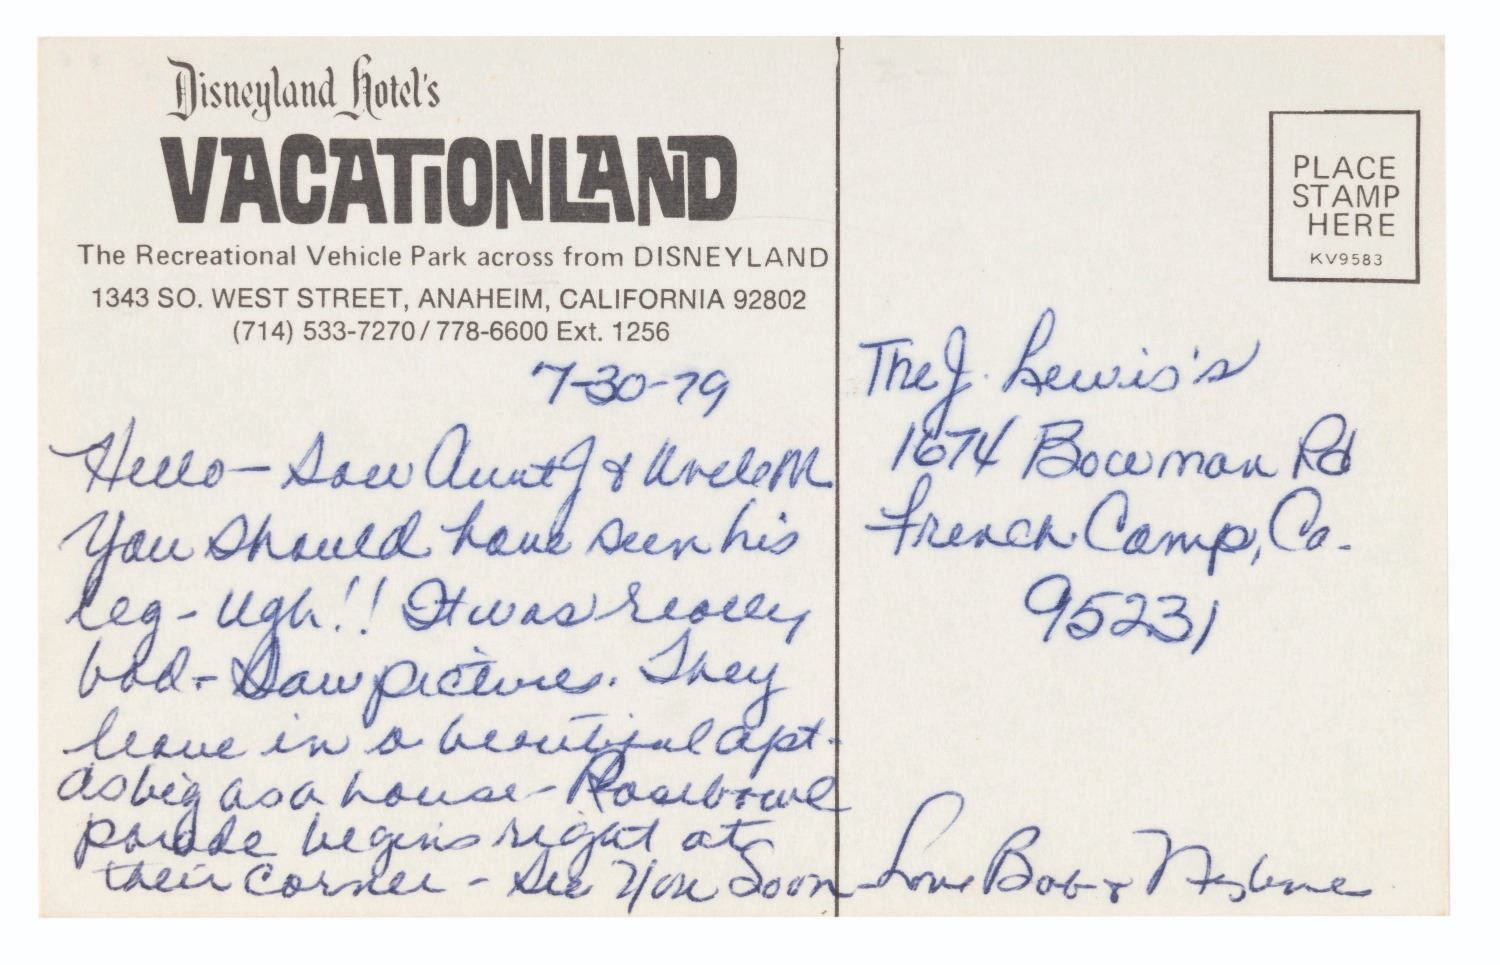 Disneyland Hotel's
VACATIONLAND
The Recreational Vehicle Park across from DISNEYLAND
1343 SO. WEST STREET, ANAHEIM, CALIFORNIA 92802
(714) 533-7270/778-6600 Ext. 1256
7-30-79
Hello - Saw Aunt J & Uncle M
You should have seen his
leg - Ugh!! It was really
bad - Saw pictures. They
leave in a beautiful apt -
as big as a house - Rosebowl
parade begins right at
their corner - See You Soon
Love Bob &
PLACE
STAMP
HERE
KV9583
The J. Lewis's
1674 Bowman Rd
French Camp, Ca.
95231